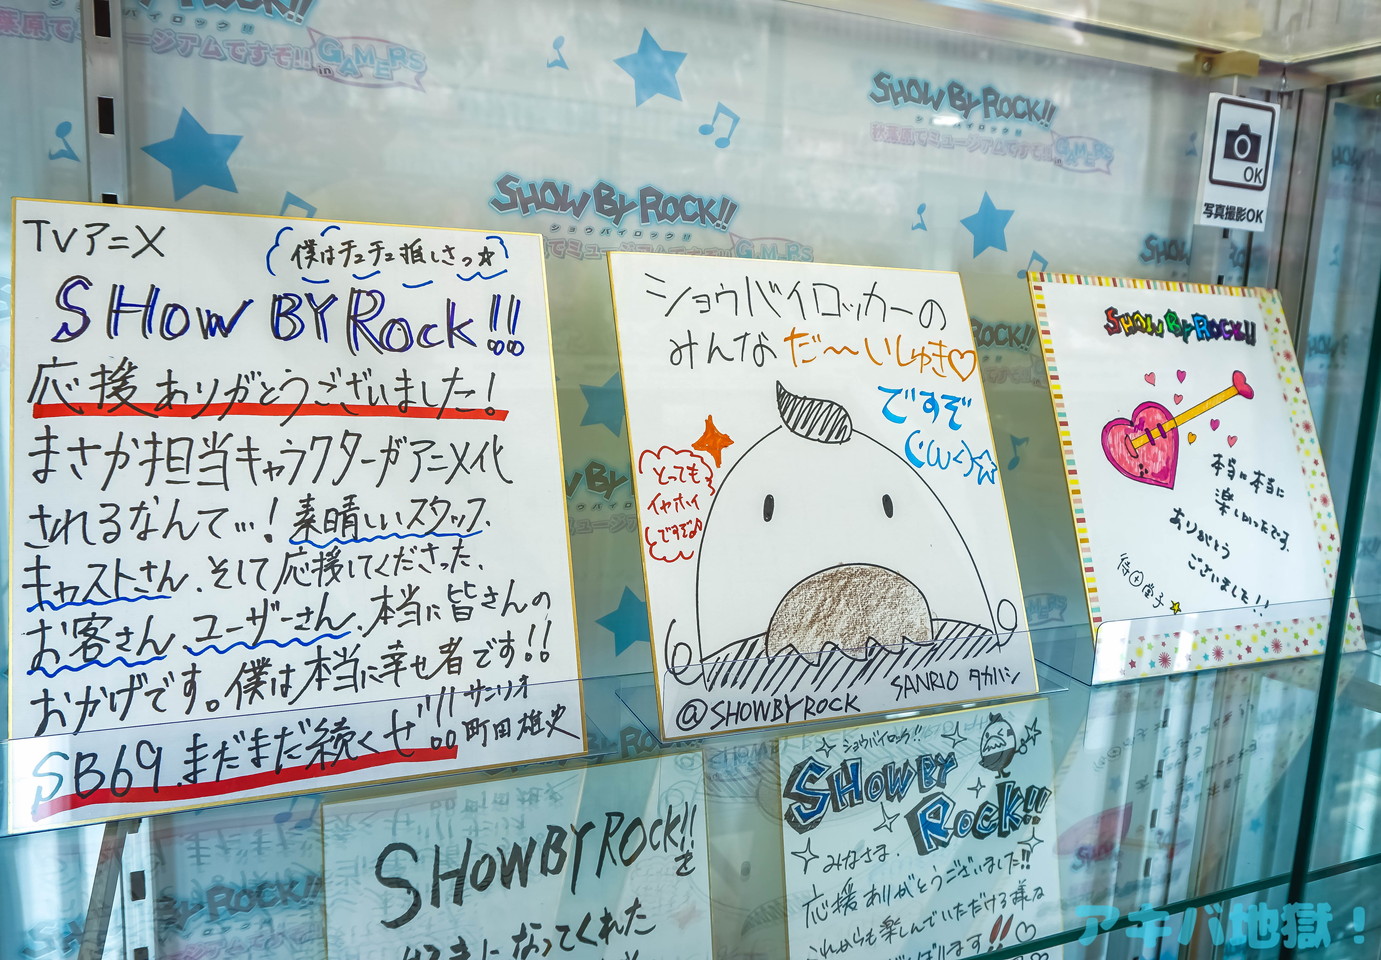 SHOW BY ROCK!!
ショウバイロック!!
秋葉原でミュージアムですぞ!! in GAMERS
SHOW BY ROCK!!
ショウバイロック!!
GAMERS
OK
写真撮影OK
TVアニメ
僕はチュチュ推しさっ☆
SHOW BY ROCK!!
応援ありがとうございました!
まさか担当キャラクターがアニメ化
されるなんて…!素晴しいスタッフ、
キャストさん、そして応援してくださった、
お客さん、ユーザーさん、本当に皆さんの
おかげです。僕は本当に幸せ者です!!
SB69、まだまだ続くぜ!!
サンリオ
町田雄史
ショウバイロッカーの
みんなだ〜いしゅき♡
ですぞ
(・ω<)☆
とっても
イヤホイ
ですぞ♪
@SHOWBYROCK
SANRIO タカハシ
SHOW BY ROCK!!
本当に本当に
楽しかったです。
ありがとう
ございました!!
SHOW BY ROCK!!
を
好きになってくれた
ショウバイロック!!
SHOW BY
ROCK!!
みなさま、
応援ありがとうございました!!
これからも楽しんでいただける様な
アキバ地獄!